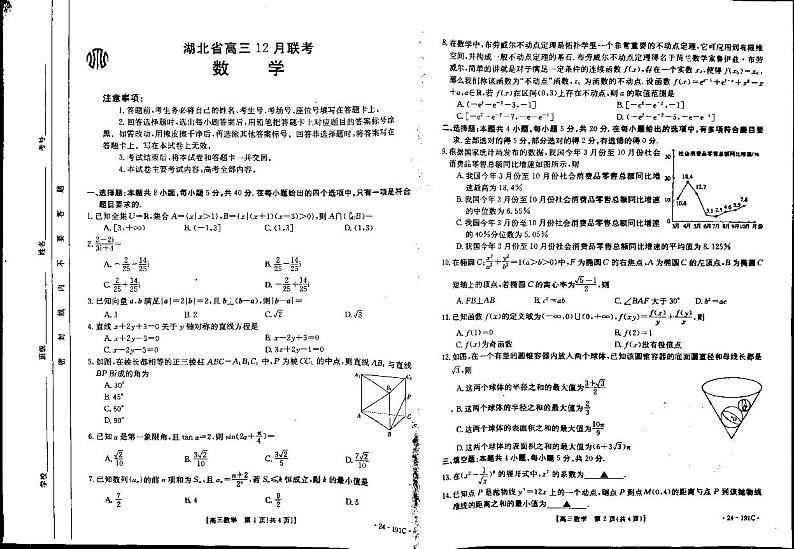 湖北省高三12月联考
数 学
注意事项：
1.答题前，考生务必将自己的姓名、考生号、考场号、座位号填写在答题卡上。
2.回答选择题时，选出每小题答案后，用铅笔把答题卡上对应题目的答案标号涂
黑。如需改动，用橡皮擦干净后，再选涂其他答案标号。回答非选择题时，将答案写在
答题卡上。写在本试卷上无效。
3.考试结束后，将本试卷和答题卡一并交回。
4.本试卷主要考试内容：高考全部内容。
一、选择题：本题共8小题，每小题5分，共40分。在每小题给出的四个选项中，只有一项是符合
题目要求的。
1.已知全集U=R，集合A={x|x>1}，B={x|(x+1)(x-3)>0}，则A∩(∁ᵤB)=
A.[3,+∞) B.(-1,3] C.(1,3] D.(1,3)
2.(2-2i)/(3i+4)=
A.-2/25-14/25i B.2/25-14/25i
C.2/25+14/25i D.-2/25+14/25i
3.已知向量a,b满足|a|=2|b|=2，且b⊥(b-a)，则|b-a|=
A.1 B.2 C.√2 D.√3
4.直线x+2y+3=0关于y轴对称的直线方程是
A.x+2y-3=0 B.x-2y+3=0
C.x-2y-3=0 D.3x+2y-1=0
5.如图，在棱长都相等的正三棱柱ABC-A₁B₁C₁中，P为棱CC₁的中点，则直线AB₁与直线
BP所成的角为
A.30°
B.45°
C.60°
D.90°
6.已知α是第一象限角，且tan α=2，则sin(2α+π/4)=
A.√2/10 B.3√2/10 C.3√2/5 D.7√2/10
7.已知数列{aₙ}的前n项和为Sₙ，且aₙ=(n+2)/2ⁿ，若Sₙ≤k恒成立，则k的最小值是
A.7/2 B.4 C.9/2 D.5
【高三数学 第1页(共4页)】
·24-191C·
8.在数学中，布劳威尔不动点定理是拓扑学里一个非常重要的不动点定理，它可应用到有限维
空间，并构成一般不动点定理的基石。布劳威尔不动点定理得名于荷兰数学家鲁伊兹·布劳
威尔，简单的讲就是对于满足一定条件的连续函数f(x)，存在一个实数x₀，使得f(x₀)=x₀，
那么我们称该函数为“不动点”函数，x₀为函数的不动点。设函数
+a，a∈R。若f(x)在区间(0,3)上存在不动点，则a的取值范围是
二、选择题：本题共4小题，每小题5分，共20分。在每小题给出的选项中，有多项符合题目要
求。全部选对的得5分，部分选对的得2分，有选错的得0分。
9.根据国家统计局发布的数据，我国今年3月份至10月份社会
消费品零售总额同比增速如图所示，则
A.我国今年3月份至10月份社会消费品零售总额同比增
速最高为18.4%
B.我国今年3月份至10月份社会消费品零售总额同比增速
的中位数为6.55%
C.我国今年3月份至10月份社会消费品零售总额同比增速
的40%分位数为5.05%
D.我国今年3月份至10月份社会消费品零售总额同比增速的平均值为8.125%
社会消费品零售总额同比增速/%
10.6 18.4 12.7 3.1 2.5 4.6 5.5 7.6
3月 4月 5月 6月 7月 8月 9月 10月 月份
10.在椭圆C：x²/a²+y²/b²=1(a>b>0)中，F为椭圆C的右焦点，A为椭圆C的左顶点，B为椭圆C
短轴上的顶点，若椭圆C的离心率为(√5-1)/2，则
A.FB⊥AB B.c²=ab C.∠BAF大于30° D.b²=ac
11.已知函数f(x)的定义域为(-∞,0)∪(0,+∞)，f(xy)=f(x)/y+f(y)/x，则
A.f(1)=0 B.f(2)=1
C.f(x)为奇函数 D.f(x)没有极值点
12.如图，在一个有盖的圆锥容器内放入两个球体，已知该圆锥容器的底面圆直径和母线长都是
√3，则
A.这两个球体的半径之和的最大值为(3+√3)/2
B.这两个球体的半径之和的最大值为2/3
C.这两个球体的表面积之和的最大值为10π/9
D.这两个球体的表面积之和的最大值为(6+3√3)π
三、填空题：本题共4小题，每小题5分，共20分。
的展开式中，x⁷的系数为 ▲ 。
14.已知点P是抛物线y²=12x上的一个动点，则点P到点M(0,4)的距离与点P到该抛物线
准线的距离之和的最小值为 ▲ 。
【高三数学 第2页(共4页)】
·24-191C·
学校
班级
姓名
考号
密 封 线 内 不 要 答 题